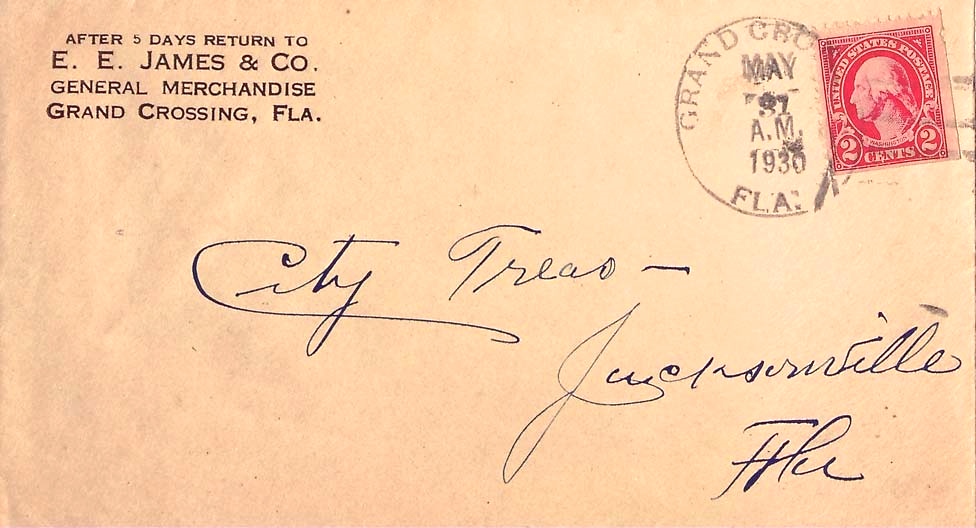 AFTER 5 DAYS RETURN TO
E. E. JAMES & CO.
GENERAL MERCHANDISE
GRAND CROSSING, FLA.
GRAND CRO
MAY
A.M.
1930
FLA.
UNITED STATES POSTAGE
WASHINGTON
2 CENTS 2
City Treas —
Jacksonville
Fla